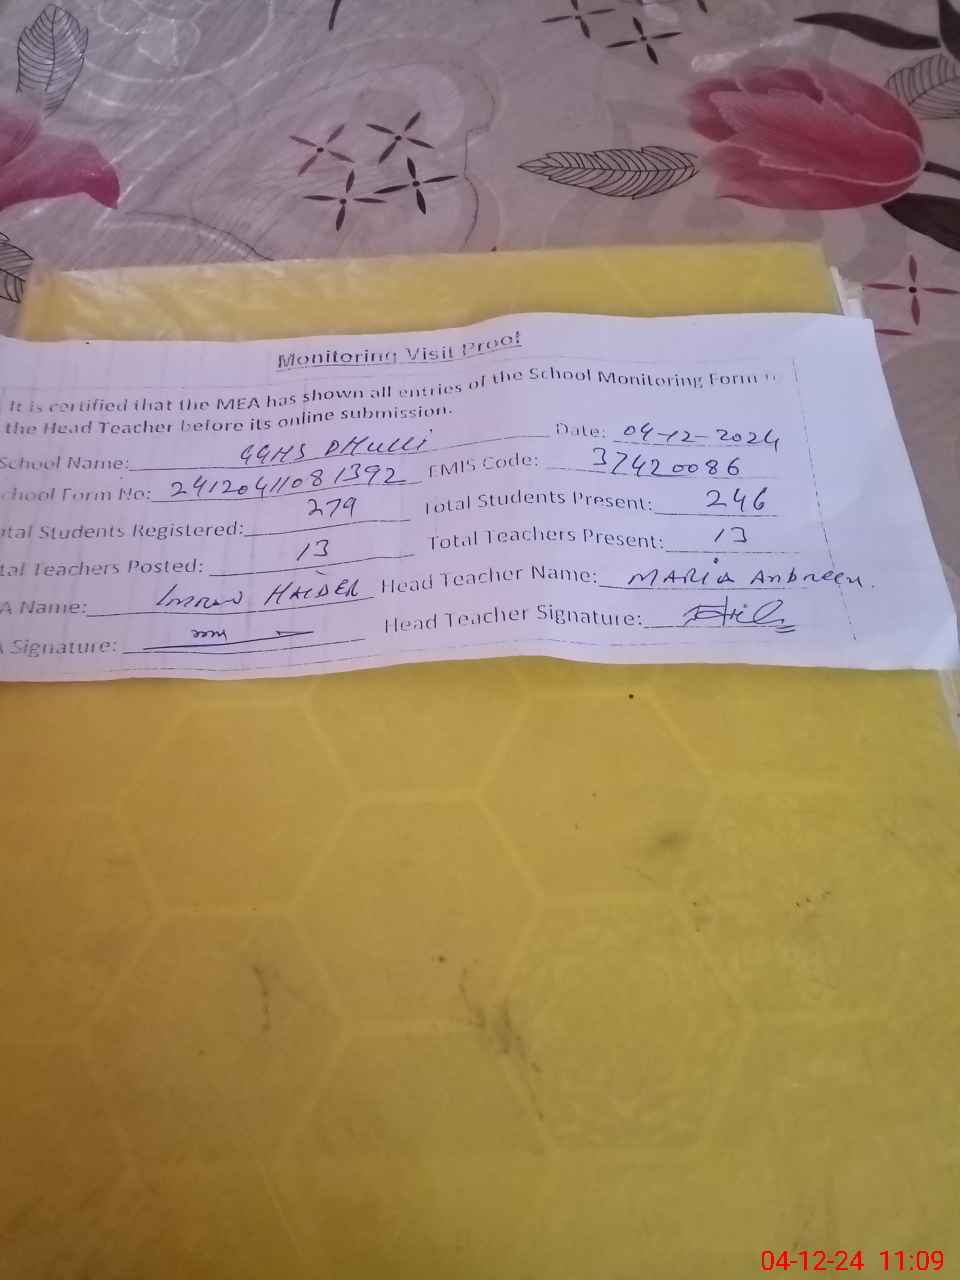 Monitoring Visit Proof
It is certified that the MEA has shown all entries of the School Monitoring Form
the Head Teacher before its online submission.
School Name: GGHS DHulli Date: 04-12-2024
chool Form No: 24120411081392 EMIS Code: 37420086
tal Students Registered: 279 Total Students Present: 246
tal Teachers Posted: 13 Total Teachers Present: 13
A Name: Imran HAIDER Head Teacher Name: MARIA Anbreen.
Signature: Head Teacher Signature:
04-12-24 11:09